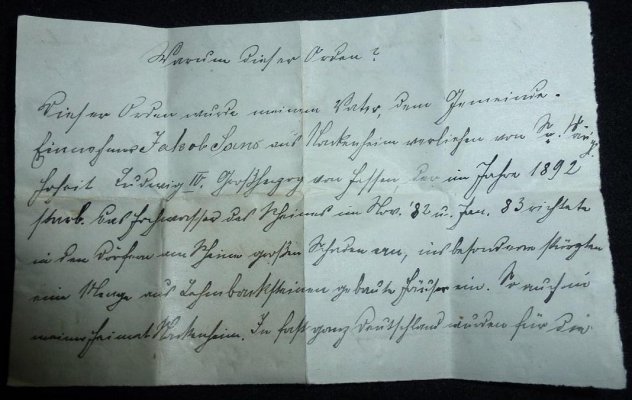 Warum dieser Orden?
Dieser Orden wurde meinem Vater, dem Gemeinde-
Einnehmer Jakob Sans aus Nackenheim verliehen von Sr. Königl.
Hoheit Ludwig IV. Großherzog von Hessen, der im Jahre 1892
starb. Das Hochwasser des Rheines im Nov. 82 u. Jan. 83 richtete
in den Dörfern am Rhein großen Schaden an, insbesondere stürzten
eine Menge aus Lehmbacksteinen gebaute Häuser ein. So auch in
meiner Heimat Nackenheim. In fast ganz Deutschland wurden für die